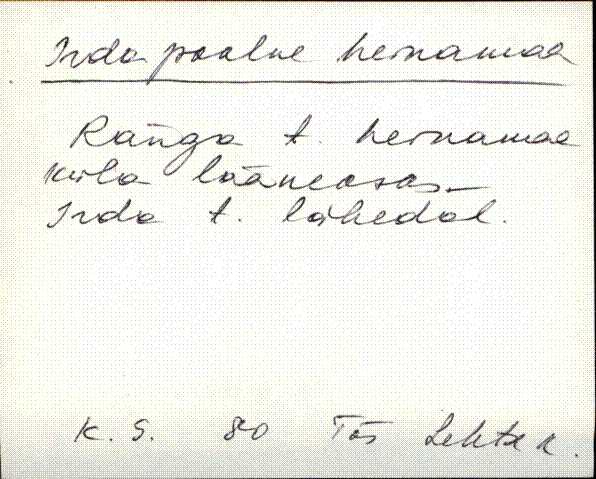 Irda poolne heinamaa
Ranga t. heinamaa
küla lääneosas
Irda t. lähedal.
K. S. 80 Tõs Lehta k.